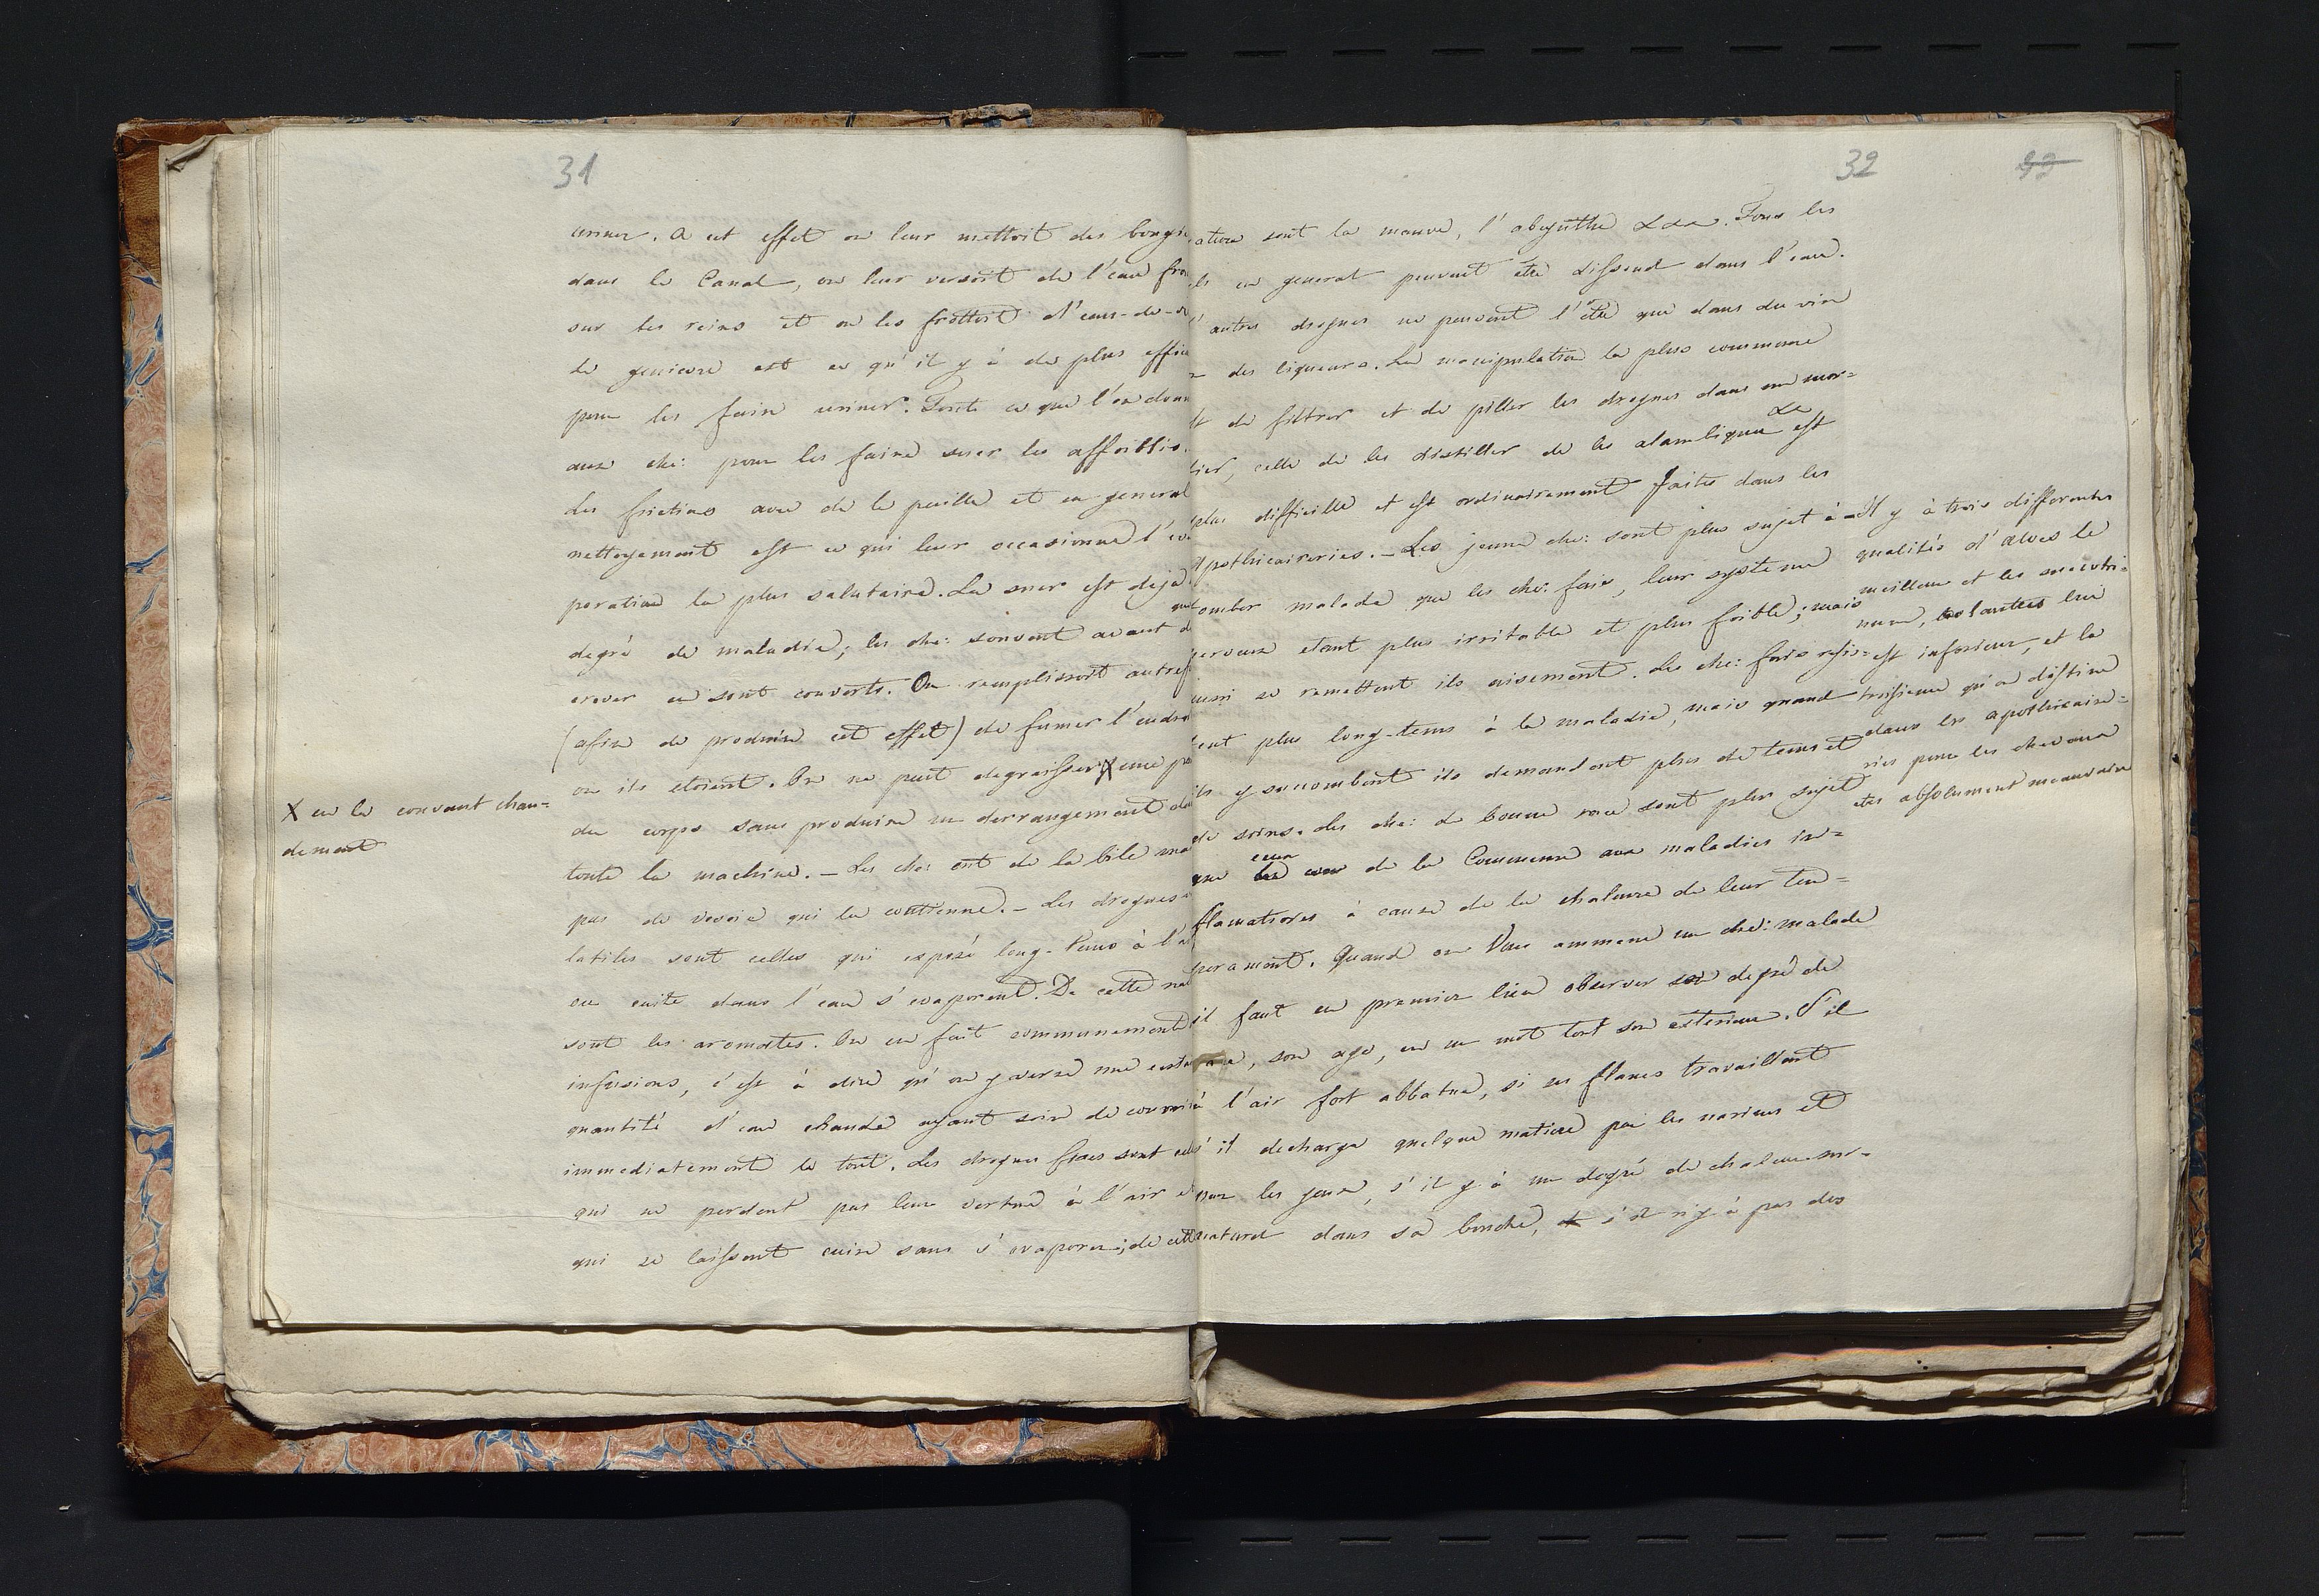 31
uriner. A cet effet on leur mettoit des bougi
dans le Canal, on leur versoit de l'eau fro
sur les reins et on les frottoit d'eau-de-v
Le genievre est ce qu'il y à de plus effica
pour les faire uriner. Tout ce que l'on donn
aux che: pour les faire suer les affoiblis.
Les frictions avec de la paille et en general
nettoyement est ce qui leur occasionne l'eva
poration la plus salutaire. La suer est deja
degré de maladie; les che: souvent avant d
crever en sont couverts. On remplissoit autref
(afin de produire cet effet) de fumer l'endro
ou ils etoient. On ne peut degraisser X une pa
du corps sans produire un derrangement da
toute la machine. – Les che: ont de la bile ma
pas de vessie qui la contienne. – Les drogues
latiles sont celles qui exposé long-tems à l'a
ou cuite dans l'eau s'evaporent. De cette na
sont les aromates. On en fait communement
infusions, c'est à dire qu'on y verse une certa
quantité d'eau chaude ayant soin de couvrir
immediatement le tout. Les drogues fixes sont cel
qui ne perdent pas leur vertue à l'air e
qui se laissent cuire sans s'evaporer; de cett
X en le couvant chau=
dement
32
99
ature sont la mauve, l'absynthe &&&. Tous les
ls en general peuvent être dissout dans l'eau.
autres drogues ne peuvent l'être que dans du vin
des liqueurs. La manipulation la plus commune
t de filtrer et de piller les drogues dans un mor=
tier, celle de les distiller de les alambiquer est La
plus difficille et est ordinairement faite dans les
Apothicaireries. – Les jeune che: sont plus sujet à
tomber malade que les che: fais, leur systeme
nerveux etant plus irritable et plus foible; mais
aussi se remettent ils aisement. Les che: fais resis=
tent plus long-tems à la maladie, mais quand
ils y succombent ils demandent plus de tems et
de soins. Les che: de bonne race sont plus sujet
que ceux de la Commune aux maladies in=
flamatores à cause de la chaleure de leur tem=
perament. Quand on Vous ammene un che: malade
il faut en premier lieu observer son degré de
, son age, en un mot tout son exterieur. S'il
à l'air fort abbatue, si ses flancs travaillent
s'il decharge quelque matiere par les narines et
par les yeux, s'il y à un degré de chaleur sur=
naturel dans sa bouche, s'il n'y à pas des
– Il y à trois differentes
qualités d'aloes le
meilleur et les succotri=
nume, les autres lui
est inferieur, et la
troisieme qu'on destine
dans les apothicaire=
ries pour les chevaux
etes absolument mauvaise